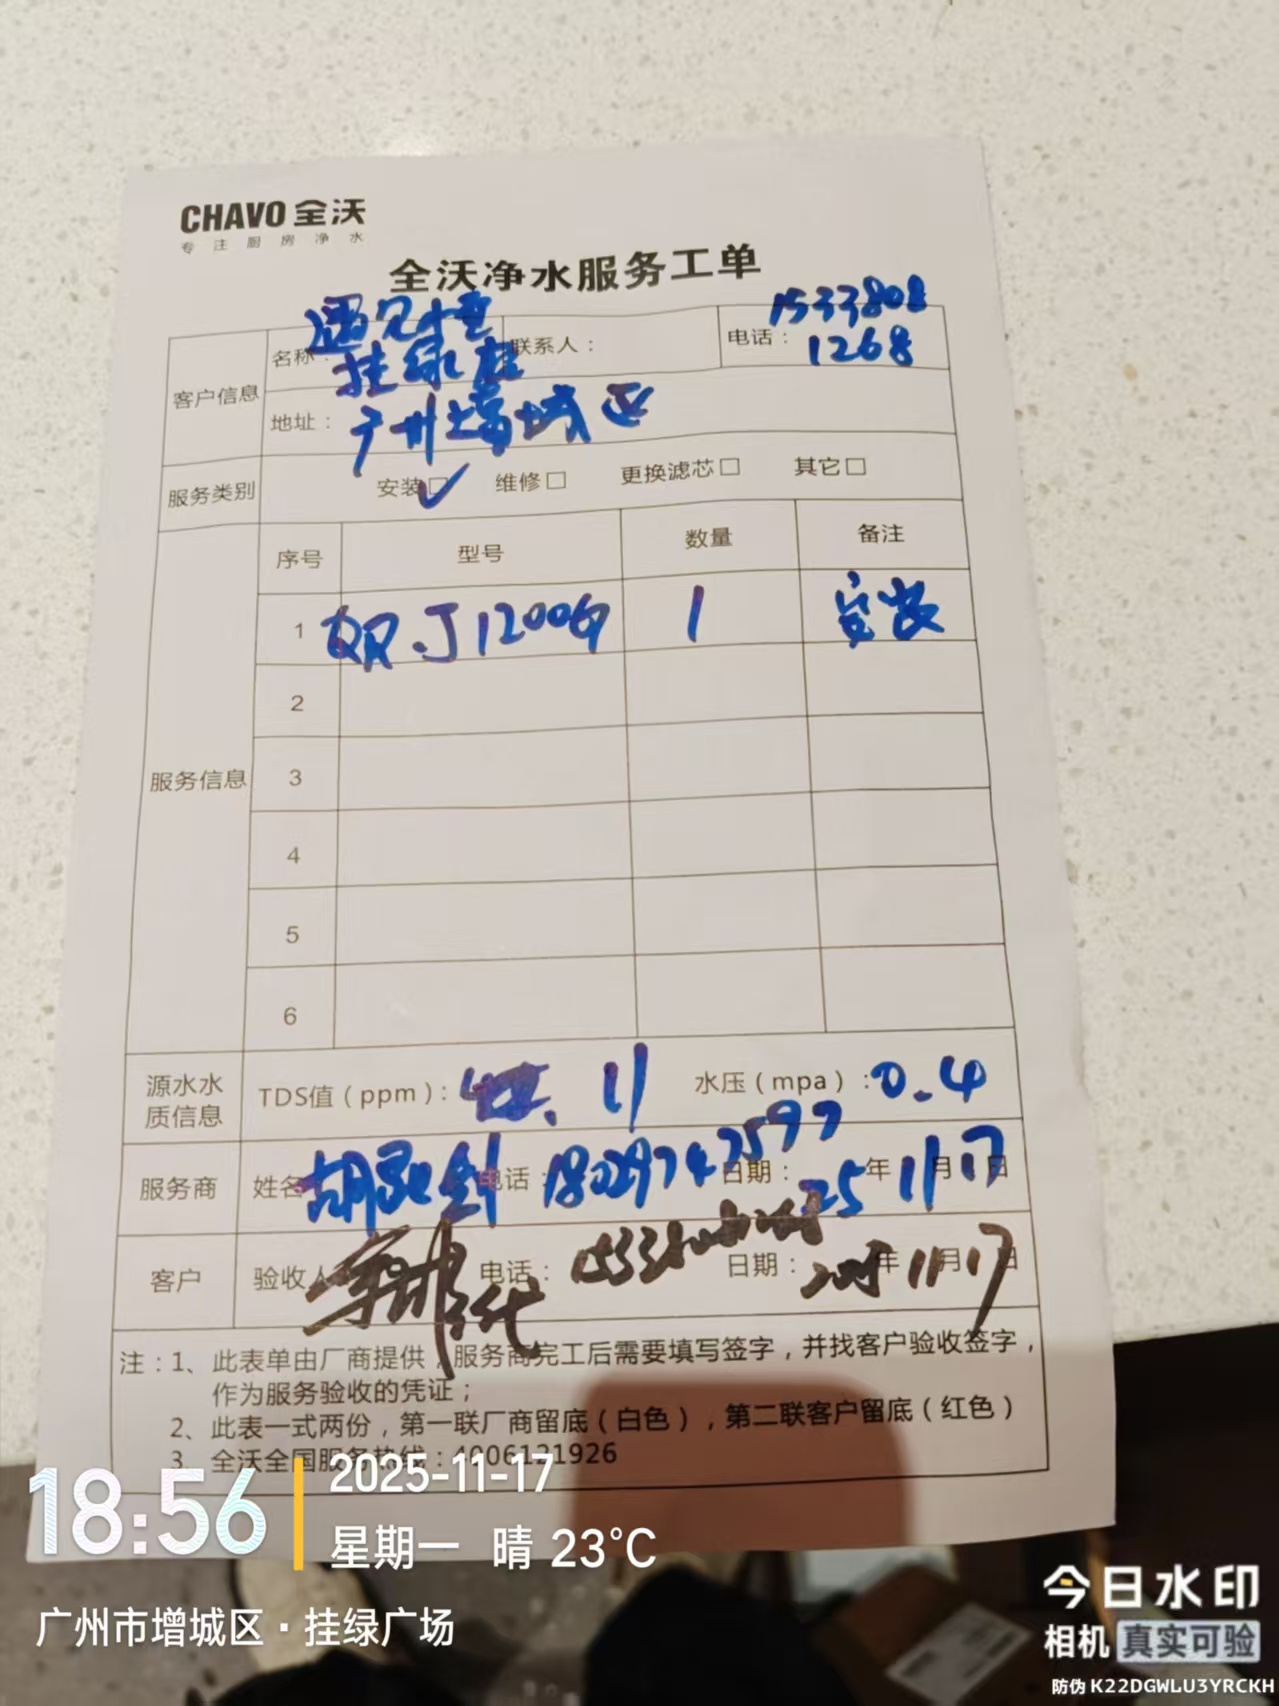 CHAVO 全沃
专注厨房净水
全沃净水服务工单
客户信息
名称: 遇见 挂绿店
联系人:
电话: 15338081268
地址: 广州增城区
服务类别 安装☑ 维修□ 更换滤芯□ 其它□
服务信息
序号 型号 数量 备注
1 J1200G 1 安装
2
3
4
5
6
源水水质信息 TDS值(ppm): 11 水压(mpa): 0.4
服务商 姓名 胡 电话: 日期: 25年11月17日
客户 验收人 电话: 日期: 2025年11月17日
注:1、此表单由厂商提供,服务商完工后需要填写签字,并找客户验收签字,
作为服务验收的凭证;
2、此表一式两份,第一联厂商留底(白色),第二联客户留底(红色)
3、全沃全国服务热线:4006121926
18:56
2025-11-17
星期一 晴 23°C
广州市增城区·挂绿广场
今日水印
相机 真实可验
防伪 K22DGWLU3YRCKH